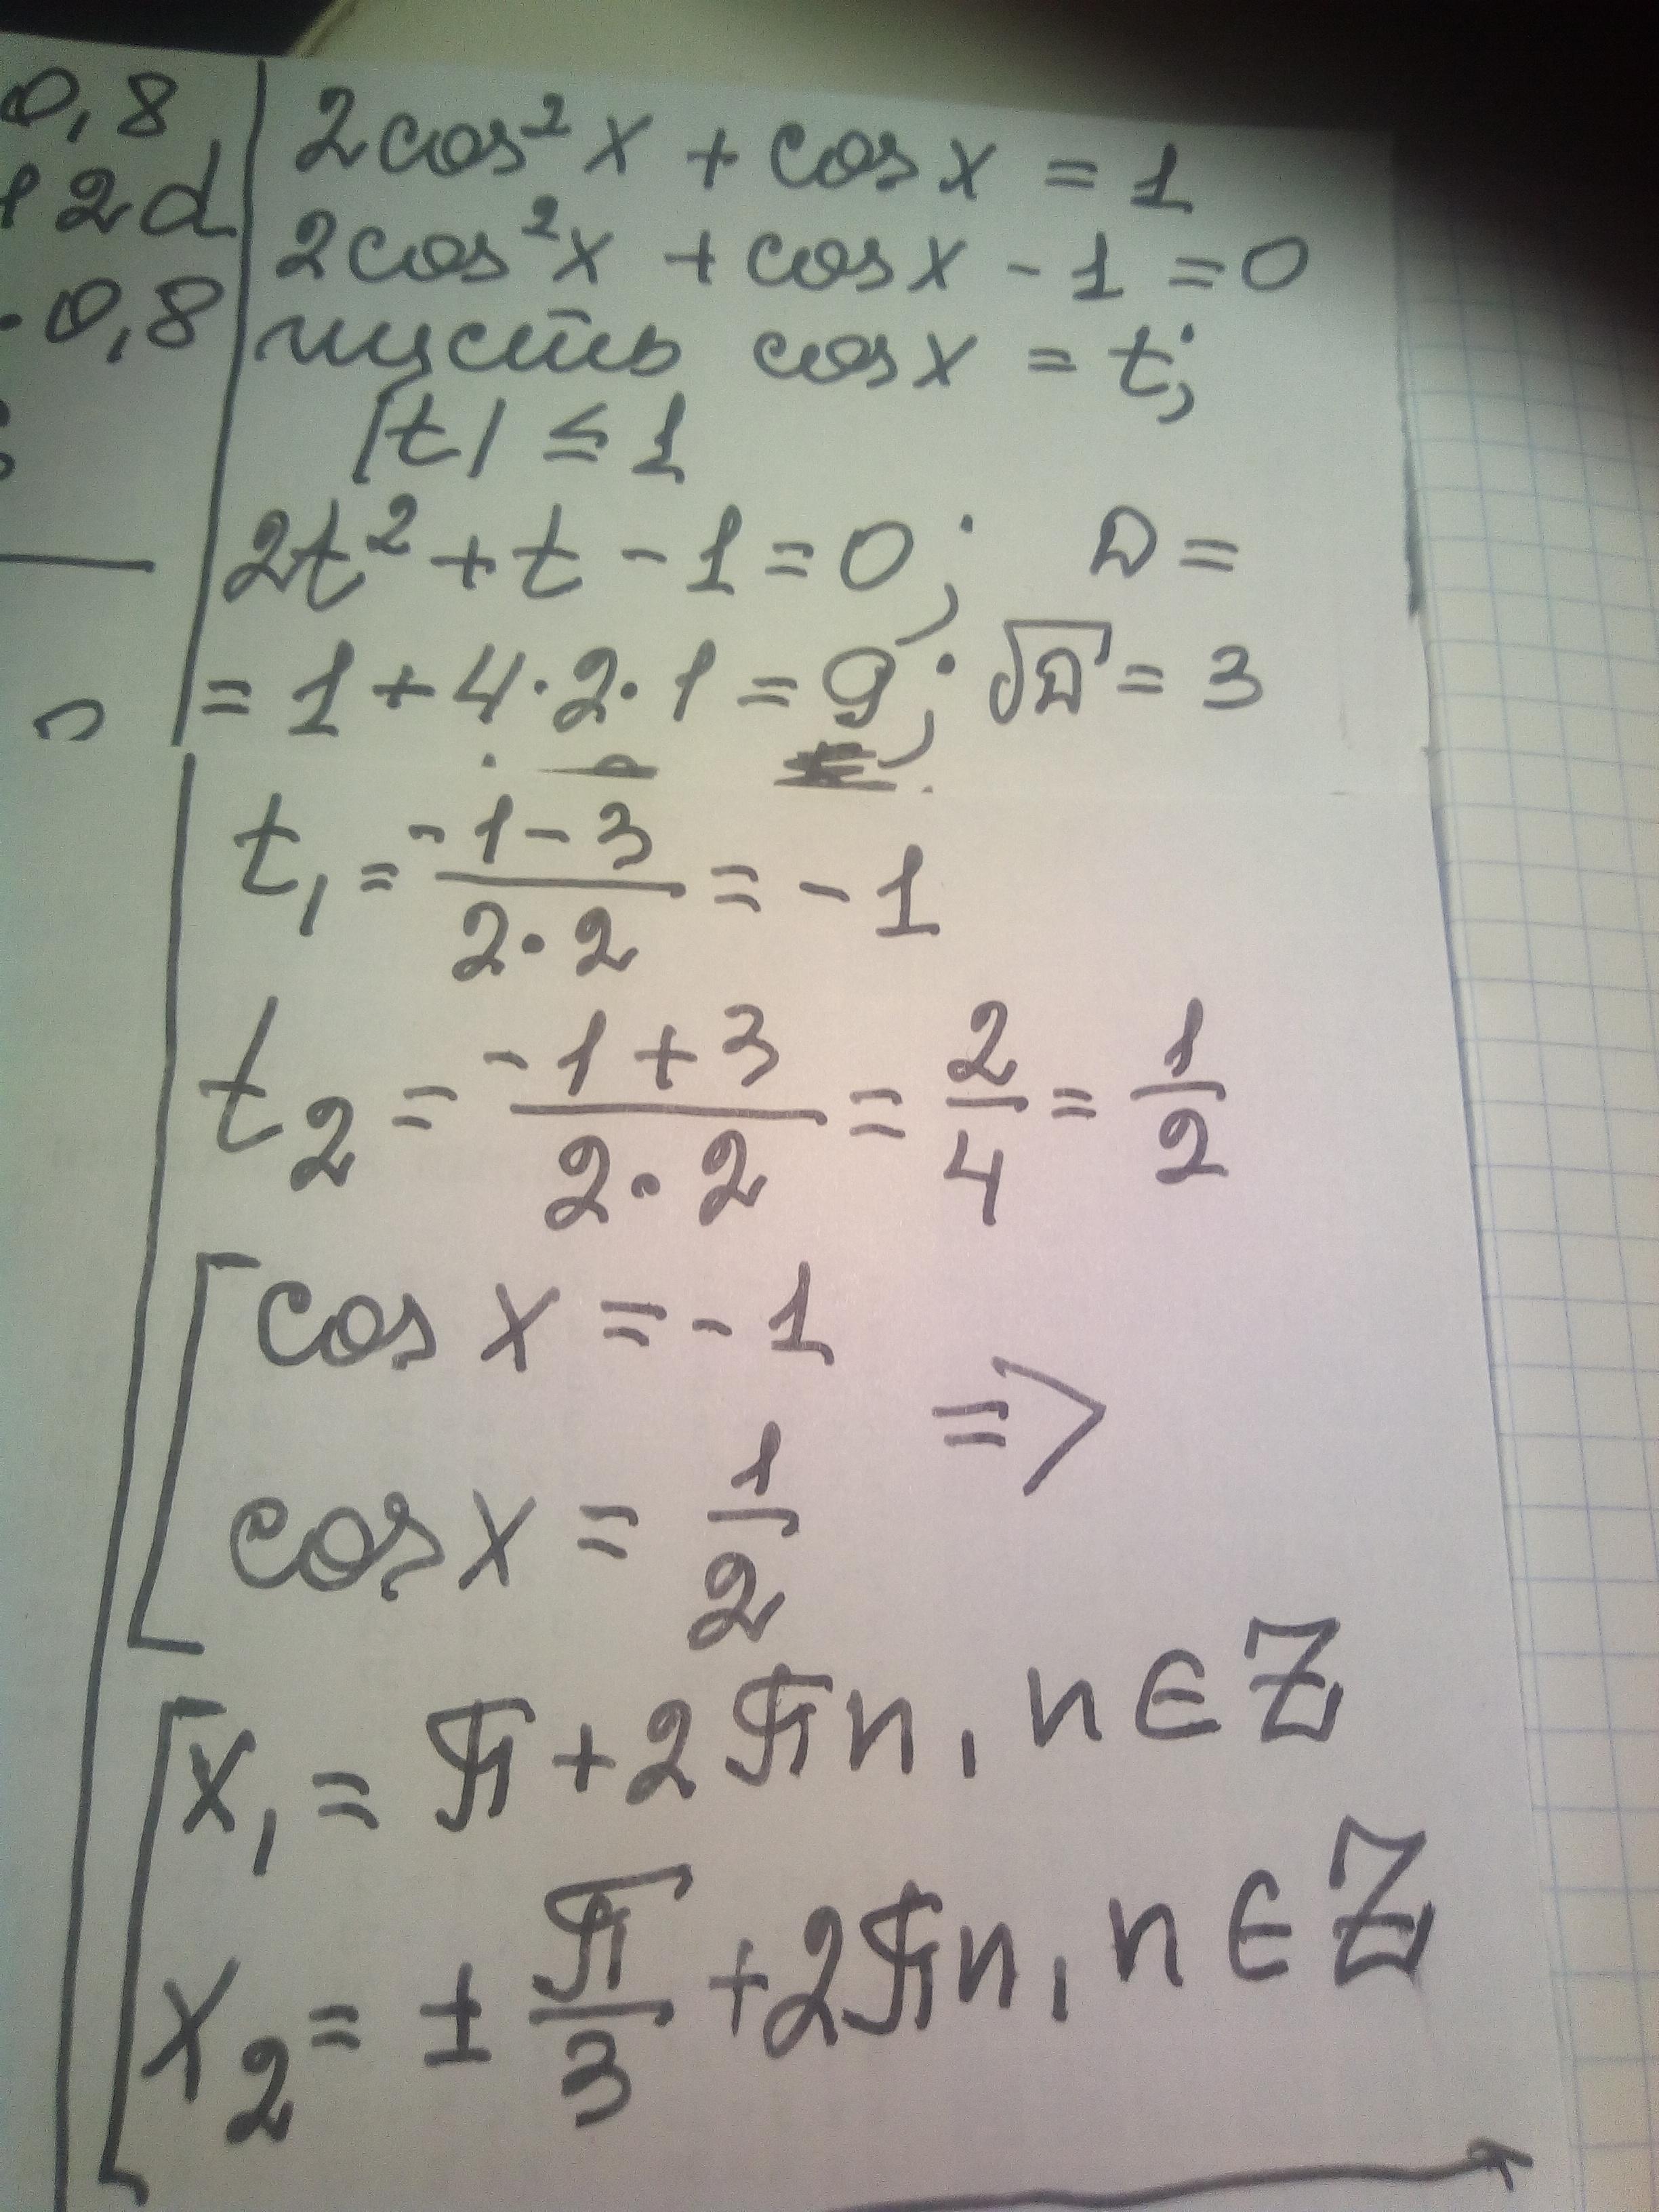 0,8
2d
-0,8
2cos²x + cosx = 1
2cos²x + cosx - 1 = 0
пусть cosx = t;
|t| ≤ 1
2t² + t - 1 = 0; D =
= 1 + 4·2·1 = 9; √D = 3
t₁ = (-1-3)/(2·2) = -1
t₂ = (-1+3)/(2·2) = 2/4 = 1/2
[cos x = -1
=>
cos x = 1/2
[x₁ = π + 2πn, n ∈ Z
x₂ = ± π/3 + 2πn, n ∈ Z